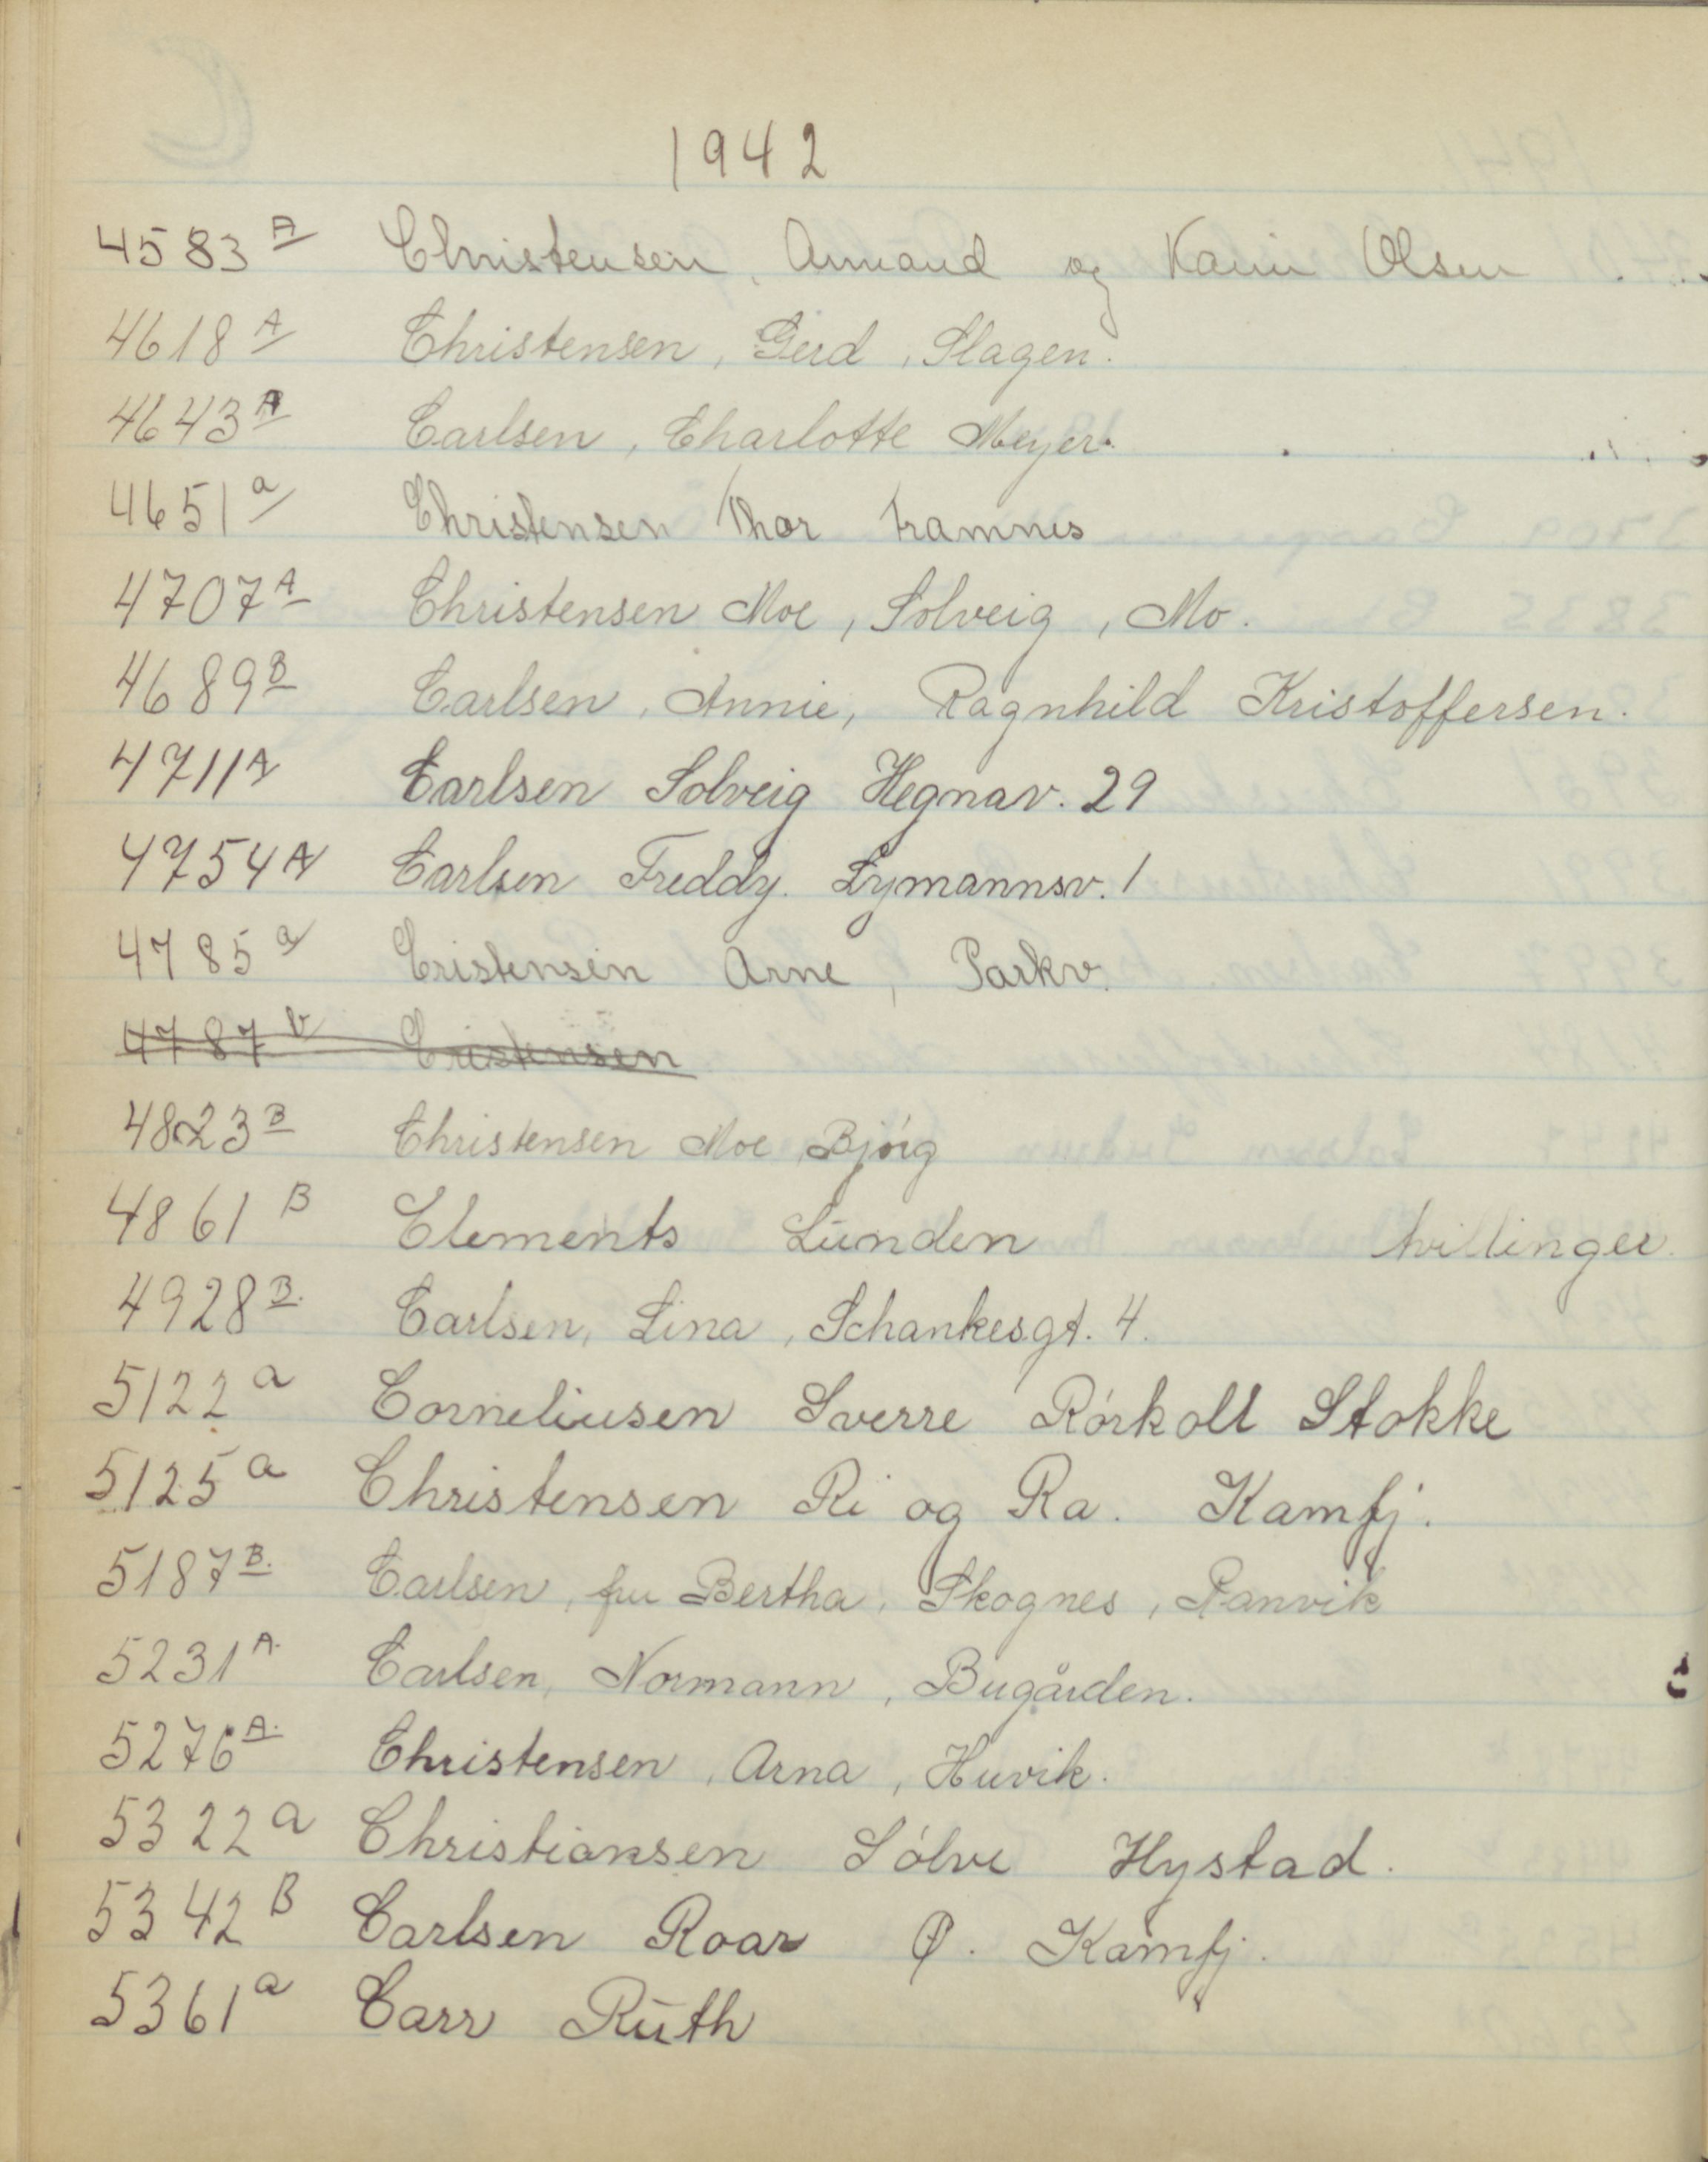 1942
4583 A Christensen, Armand og Karin Olsen
4618 A Christensen, Gerd, Slagen.
4643 A Carlsen, Charlotte Meyer.
4651 a Christensen Thor Framnes
4707 A Christensen Moe, Solveig, Mo.
4689 B Carlsen, Annie, Ragnhild Kristoffersen.
4711 A Carlsen Solveig Hegnav. 29
4754 A Carlsen Freddy. Lymannsv. 1
4785 a Cristensen Arne, Parkv.
4787 b Cristensen
4823 B Christensen Moe, Bjórg
4861 B Clements Lunden tvillinger.
4928 B. Carlsen, Lina, Schankesgt. 4.
5122 a Corneliusen Sverre Rórkoll Stokke
5125 a Christensen Ri og Ra. Kamfj.
5187 B. Carlsen, fru Bertha, Skognes, Ranvik
5231 A. Carlsen, Normann, Bugården.
5276 A. Christensen, Arna, Huvik.
5322 a Christiansen Sólve Hystad.
5342 B Carlsen Roar Ø. Kamfj.
5361 a Carr Ruth